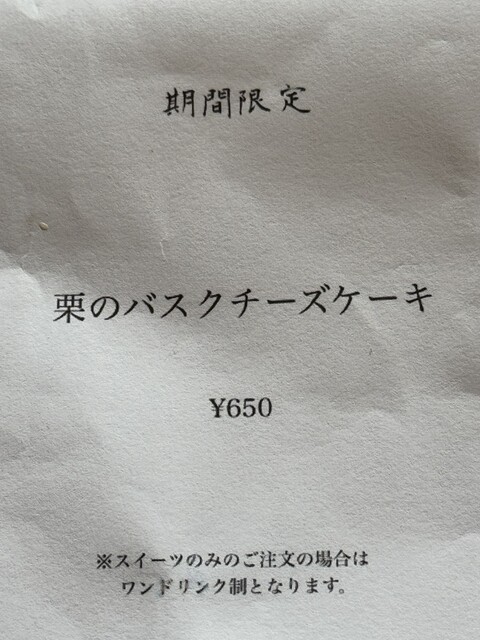 期間限定
栗のバスクチーズケーキ
¥650
※スイーツのみのご注文の場合は
ワンドリンク制となります。